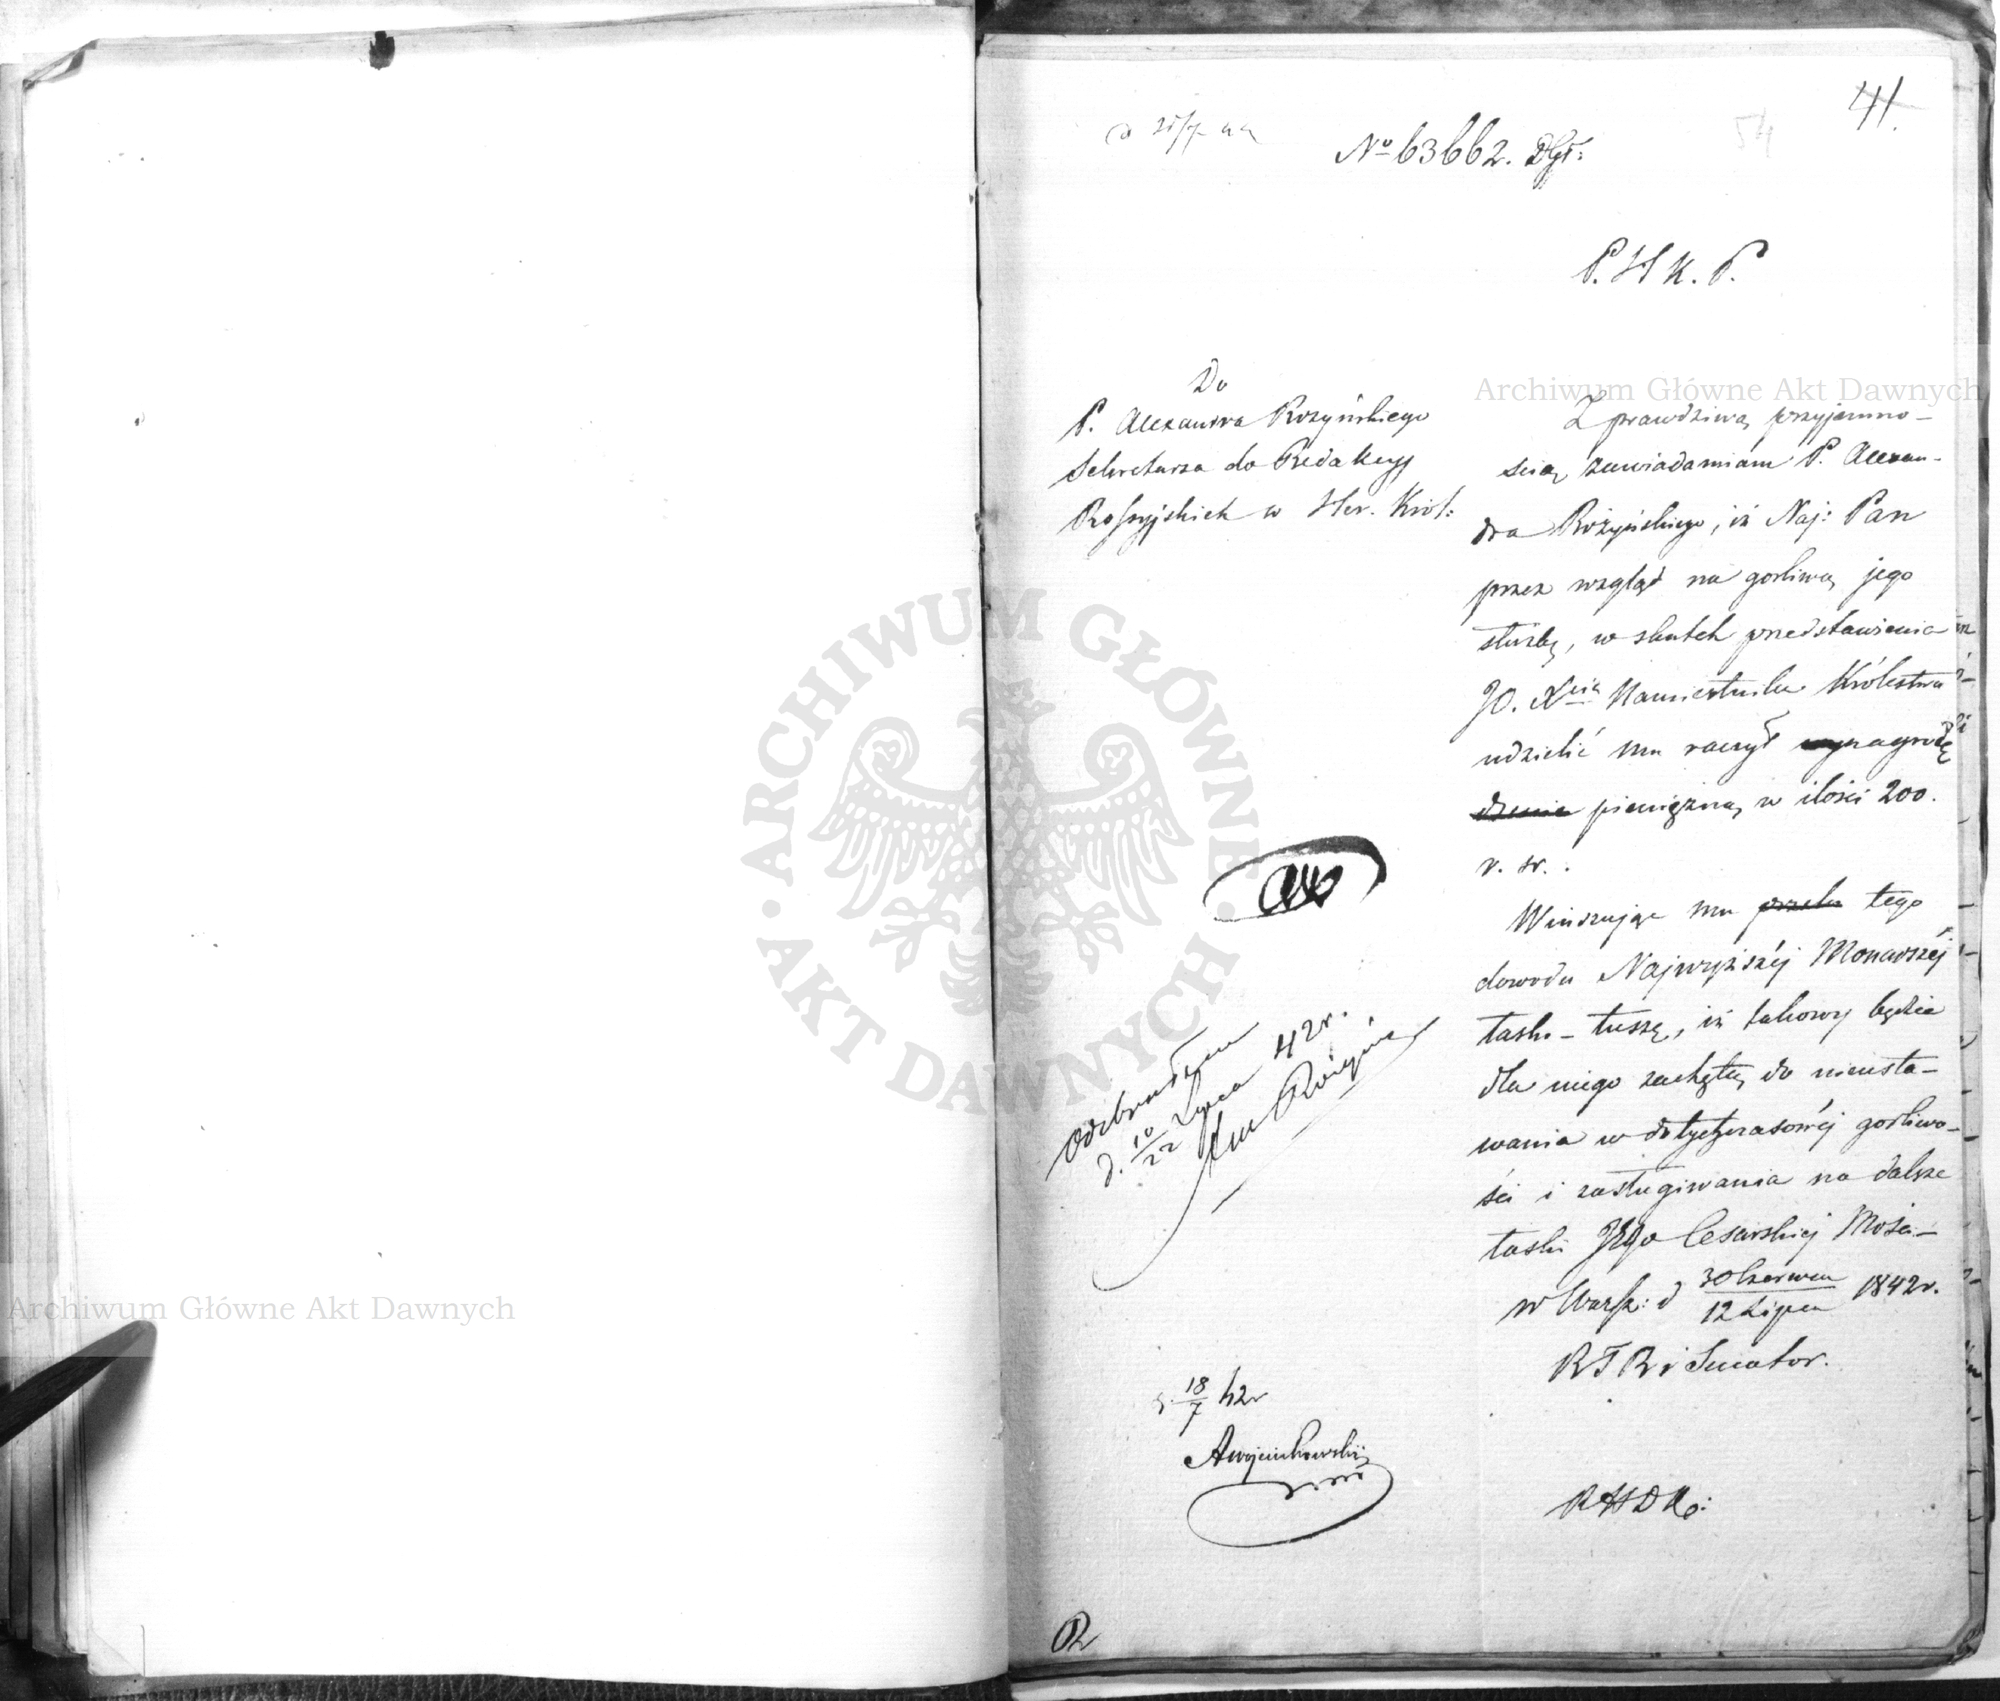 41.
54
No 63662. Dgł:
P. H K. P.
Do
P. Alexandra Rożyńskiego
Sekretarza do Redakcyj
Rossyjskich w Her. Król:
Z prawdziwą przyjemno-
ścią zawiadamiam P. Alexan-
dra Rożyńskiego, iż Naj: Pan
przez wzgląd na gorliwą jego
służbę, w skutek przedstawienia
JO. Xcia Namiestnika Królestwa
udzielić mu raczył wynagrodę
dzenie pieniężną w ilości 200.
r. sr.
Winszując mu tego
dowodu Najwyższéj Monarszéj
łaski – tuszę, iż takowy będzie
dla niego zachętą do nieusta-
wania w dotychczasowéj gorliwo-
ści i zasługiwania na dalsze
łaski Jego Cesarskiej Mości –
w Warsz: d 30 Czerwca / 12 Lipca 1842 r.
R T R i Senator.
Odebrałem
d. 10/22 Lipca 42 r.
d. 18/7 42 r
AWojciechowski
R H D Ko:
Archiwum Główne Akt Dawnych
Archiwum Główne Akt Dawnych
ARCHIWUM GŁÓWNE · AKT DAWNYCH ·